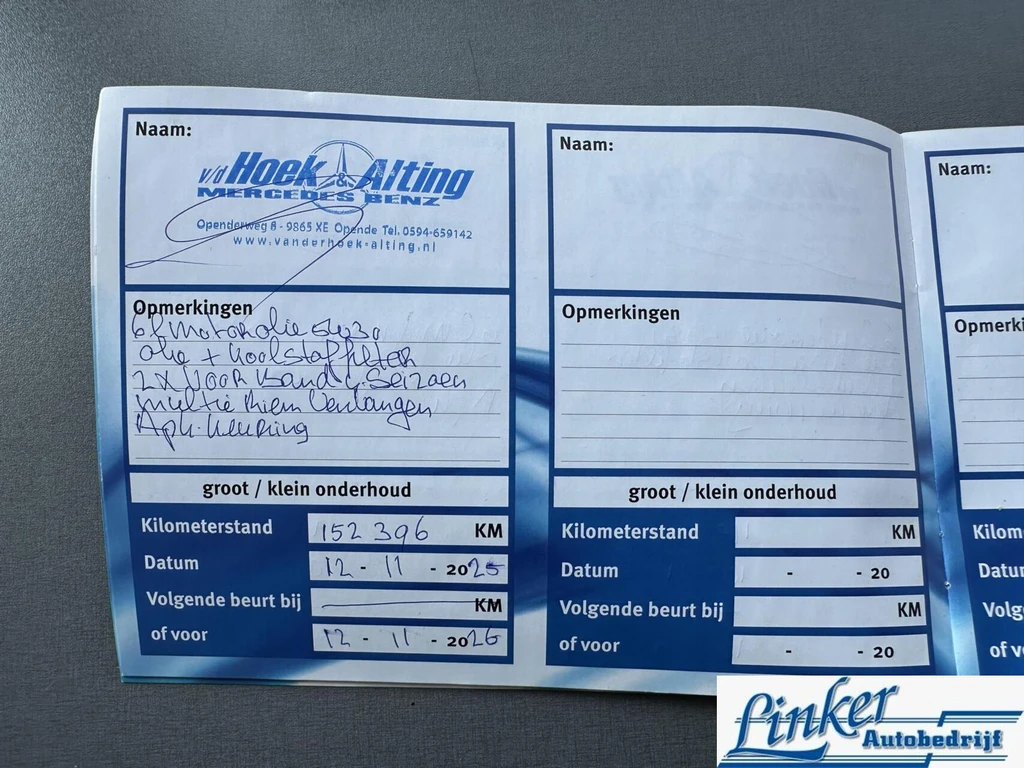 Naam:
v/d Hoek & Alting
MERCEDES BENZ
Openderweg 8 - 9865 XE Opende Tel. 0594-659142
www.vanderhoek-alting.nl
Opmerkingen
6l motorolie 5w30
olie + koolstoffilter
2x voor band 4 Seizoen
multie riem vervangen
Apk. keuring
groot / klein onderhoud
Kilometerstand 152 396 KM
Datum 12 - 11 - 2025
Volgende beurt bij KM
of voor 12 - 11 - 2026
Naam:
Opmerkingen
groot / klein onderhoud
Kilometerstand KM
Datum - - 20
Volgende beurt bij KM
of voor - - 20
Naam:
Opmerki
Kilom
Datu
Volg
of v
Linker
Autobedrijf